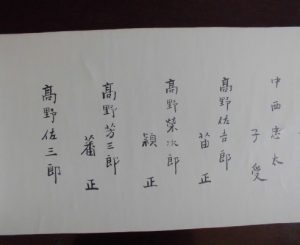 中西忠太
子愛
高野佐吉郎
苗正
高野榮次郎
穎正
高野芳三郎
蕃正
高野佐三郎